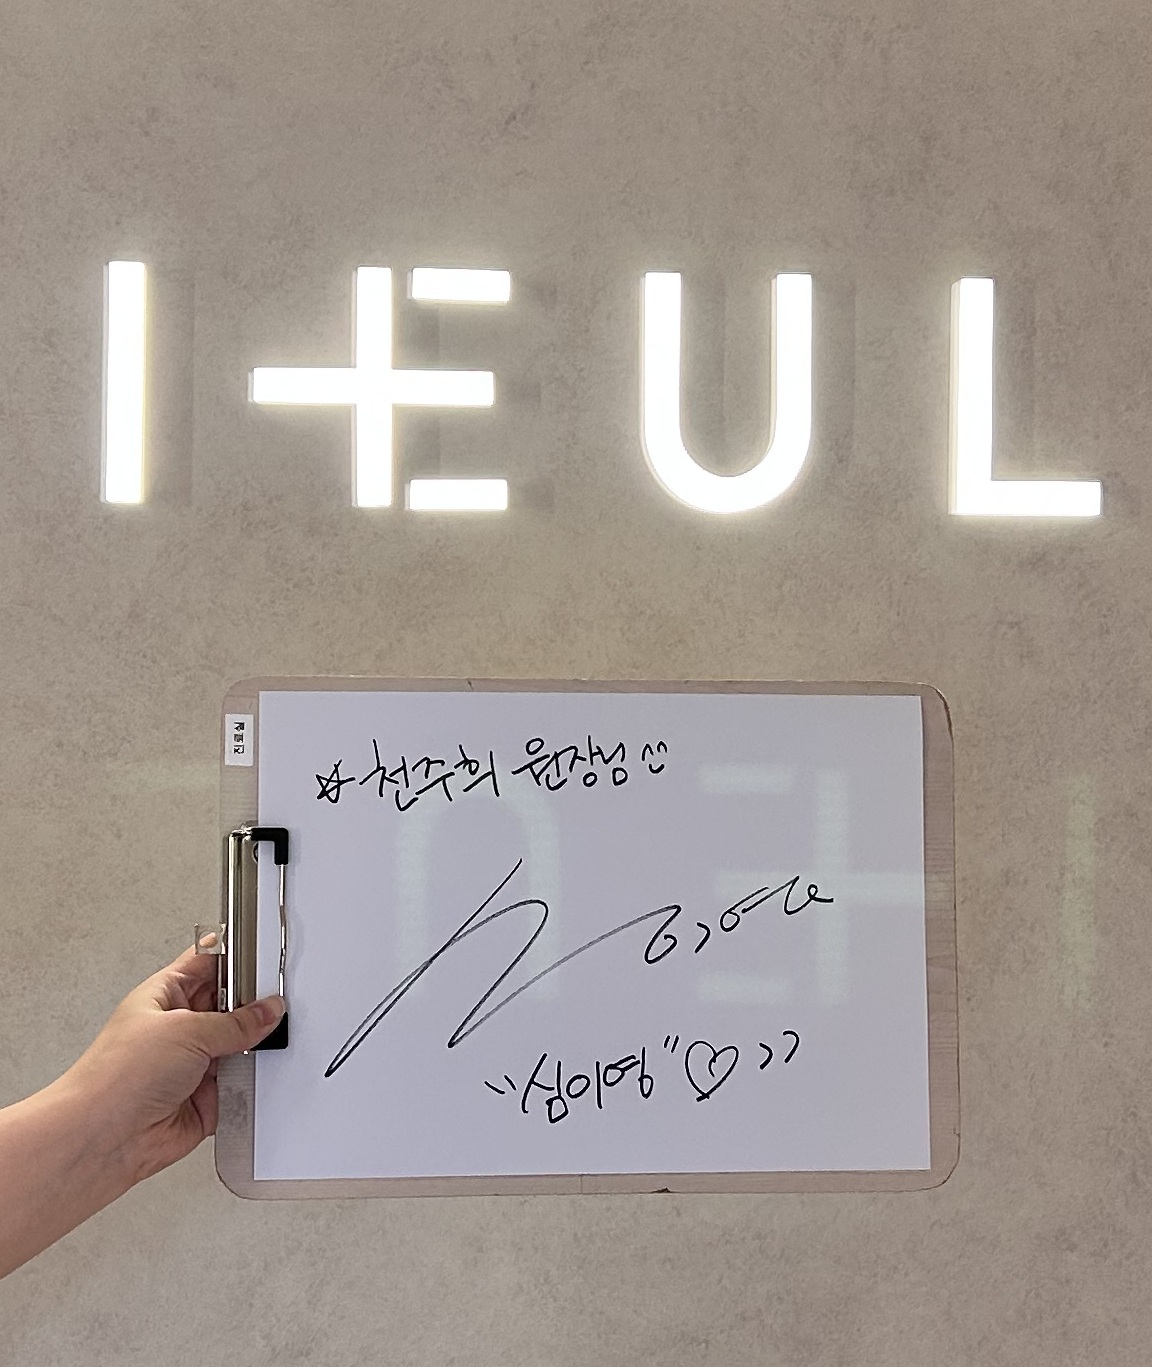 IEUL
진료실
☆ 천주희 원장님
"심이영" ♡>>